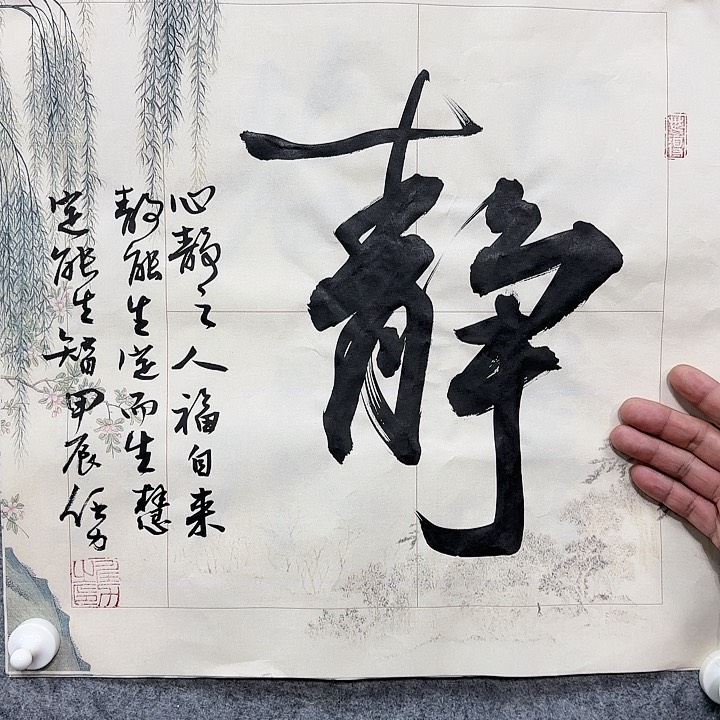 静
心静之人福自来
静能生定而生慧
定能生智甲辰任力